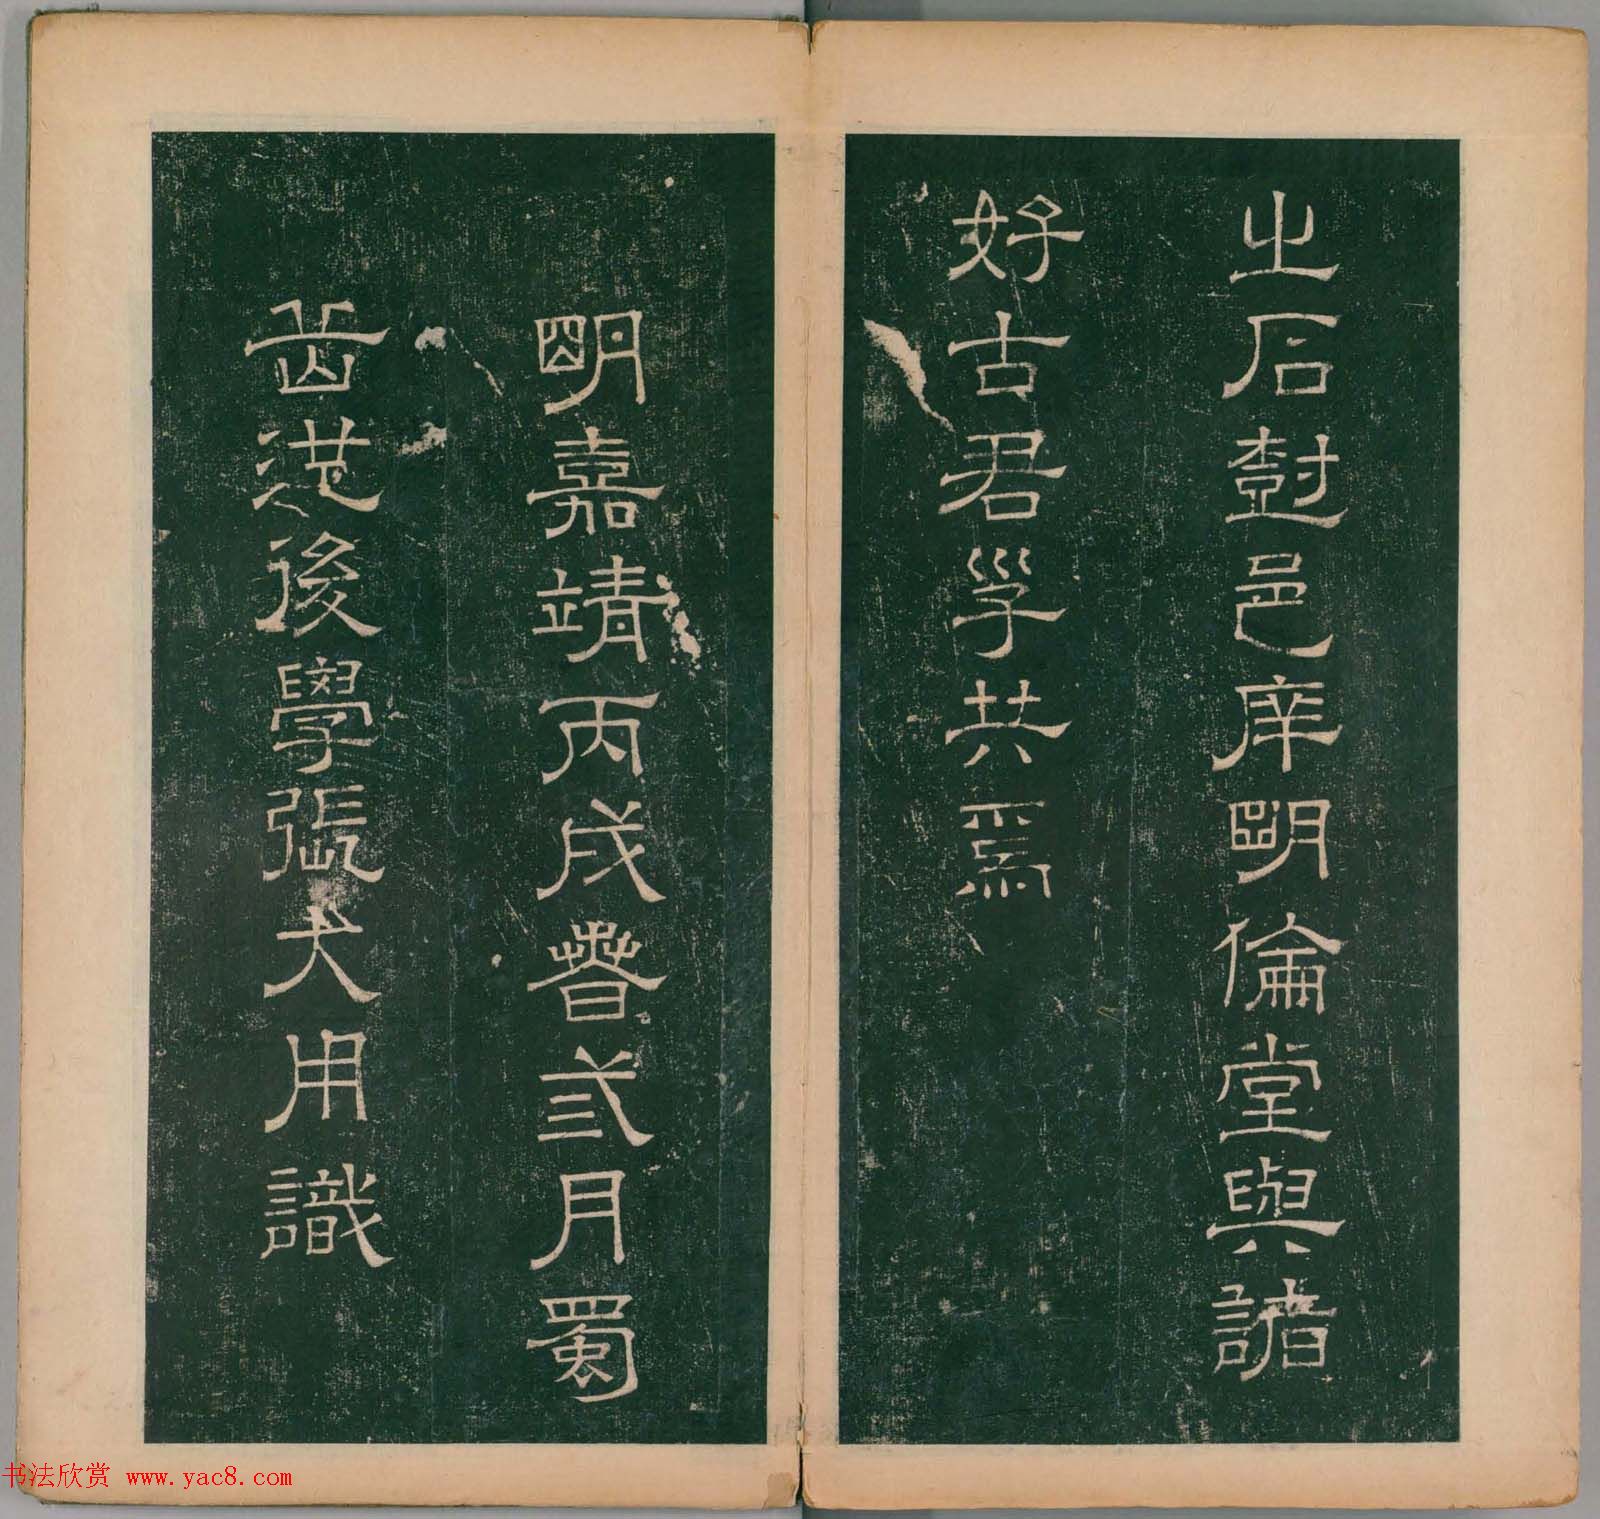 之石樹邑庠明倫堂與諸
好古君子共焉
明嘉靖丙戌春弍月蜀
齒港後學張大用識
书法欣赏 www.yac8.com